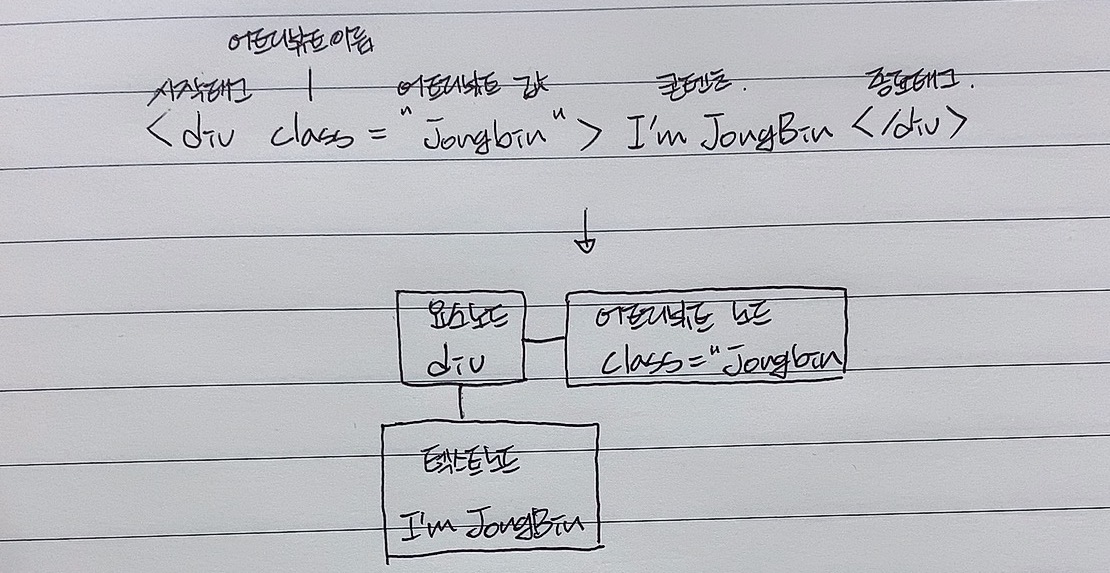 어트리뷰트 이름
시작태그 어트리뷰트 값 콘텐츠. 종료태그.
<div class = "Jongbin"> I'm JongBin </div>
↓
요소노드
div
어트리뷰트 노드
class="Jongbin
텍스트노드
I'm JongBin